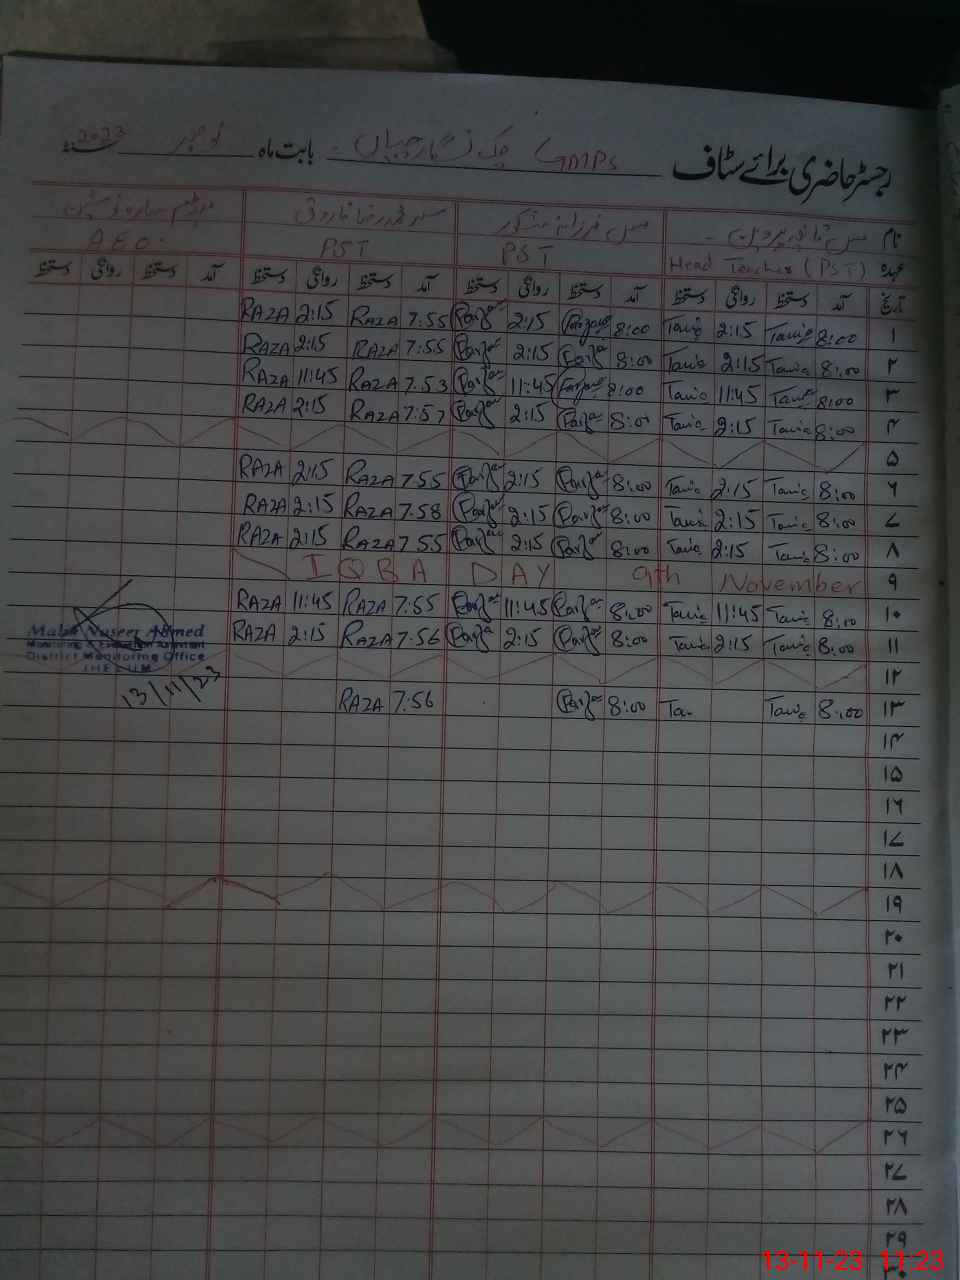 رجسٹر حاضری برائے سٹاف GMPS چک نگارچیاں بابت ماہ نومبر سنہ 2023
نام مس ثانیہ پروین مس فرزانہ منظور مسٹر محمد رضا فاروقی
عہدہ Head Teacher (PST) PST PST AEO.
تاریخ آمد دستخط روانگی دستخط آمد دستخط روانگی دستخط آمد دستخط روانگی دستخط آمد دستخط روانگی دستخط
۱ 8:00 Tania 2:15 Tania 8:00 Farzana 2:15 7:55 RAZA 2:15 RAZA
۲ 8:00 Tania 2:15 Tania 8:00 2:15 7:55 RAZA 2:15 RAZA
۳ 8:00 Tania 11:45 Tania 8:00 Farzana 11:45 7:53 RAZA 11:45 RAZA
۴ 8:00 Tania 2:15 Tania 8:00 2:15 7:57 RAZA 2:15 RAZA
۵
۶ 8:00 Tania 2:15 Tania 8:00 2:15 7:55 RAZA 2:15 RAZA
۷ 8:00 Tania 2:15 Tania 8:00 2:15 7:58 RAZA 2:15 RAZA
۸ 8:00 Tania 2:15 Tania 8:00 2:15 7:55 RAZA 2:15 RAZA
۹ IQBA DAY 9th November
۱۰ 8:00 Tania 11:45 Tania 8:00 11:45 7:55 RAZA 11:45 RAZA
۱۱ 8:00 Tania 2:15 Tania 8:00 2:15 7:56 RAZA 2:15 RAZA
Malik Naseer Ahmed
Monitoring & Evaluation Assistant
District Monitoring Office
JHELUM
13/11/23
۱۲
۱۳ 8:00 Tania Tan 8:00 7:56 RAZA
۱۴
۱۵
۱۶
۱۷
۱۸
۱۹
۲۰
۲۱
۲۲
۲۳
۲۴
۲۵
۲۶
۲۷
۲۸
۲۹
۳۰
13-11-23 11:23